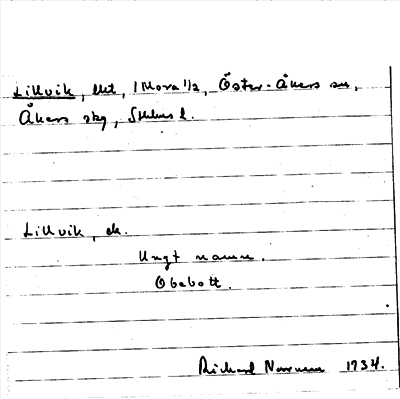 Lillvik, lht, i Mora 1/2, Öster-Åkers sn,
Åkers skg, Sthlms l.
Lillvik, ek.
Ungt namn.
Obebott.
Rickard 1934.